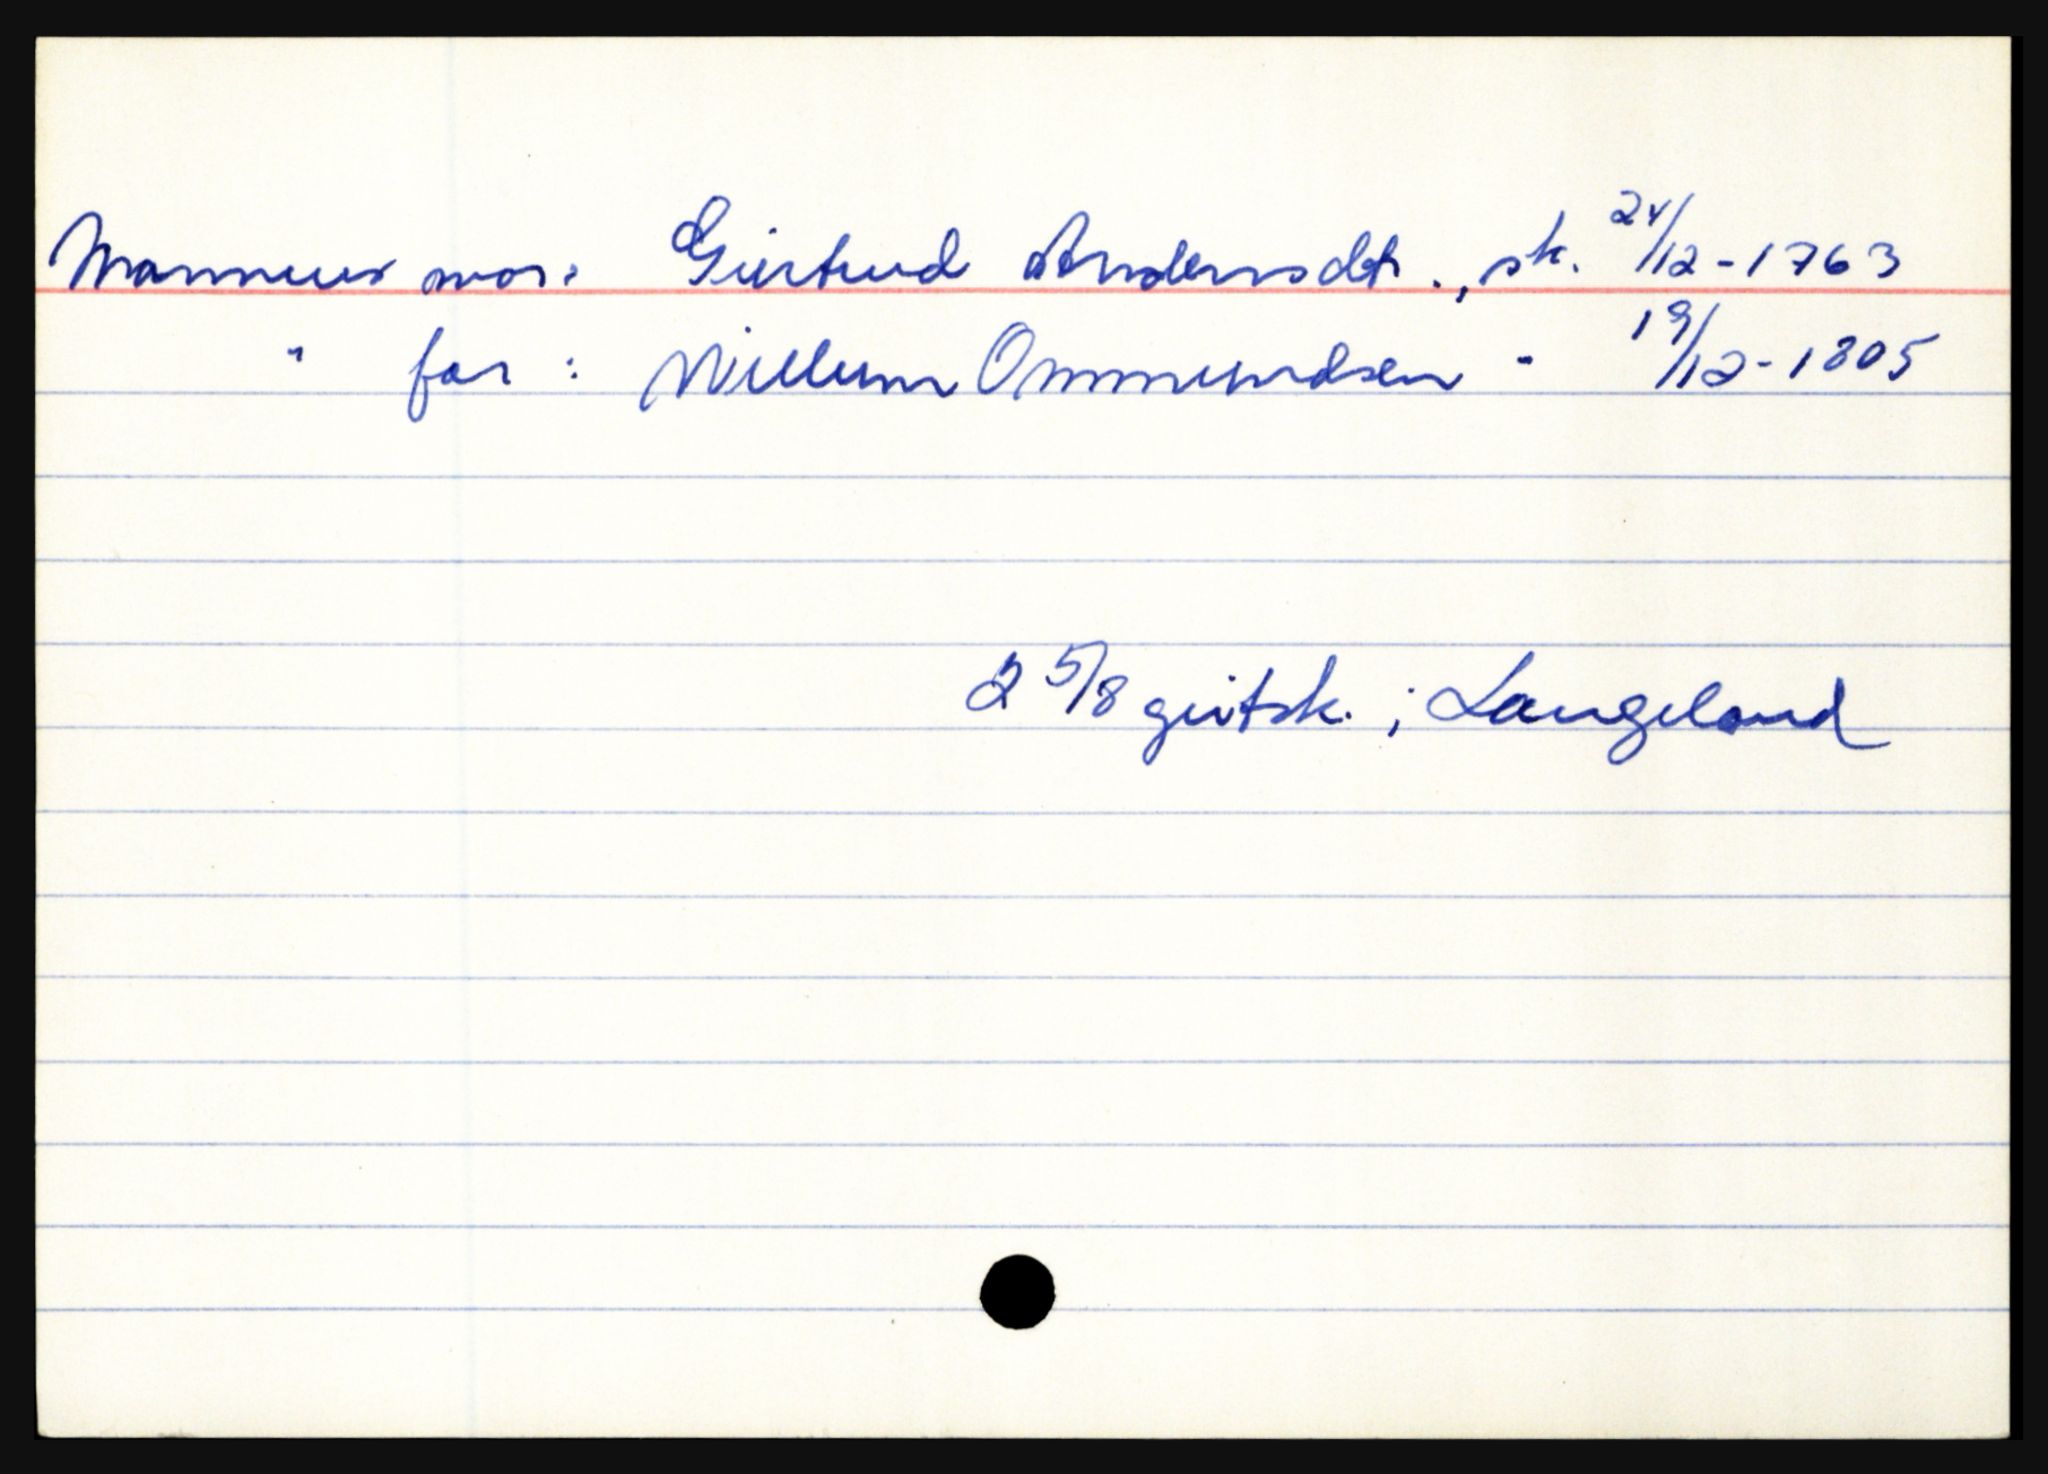 Mannens mor: Giertrud Andersdtr., sk. 24/12-1763
" far : Willum Ommundsen " 19/12-1805
2 5/8 gitsk. i Langeland